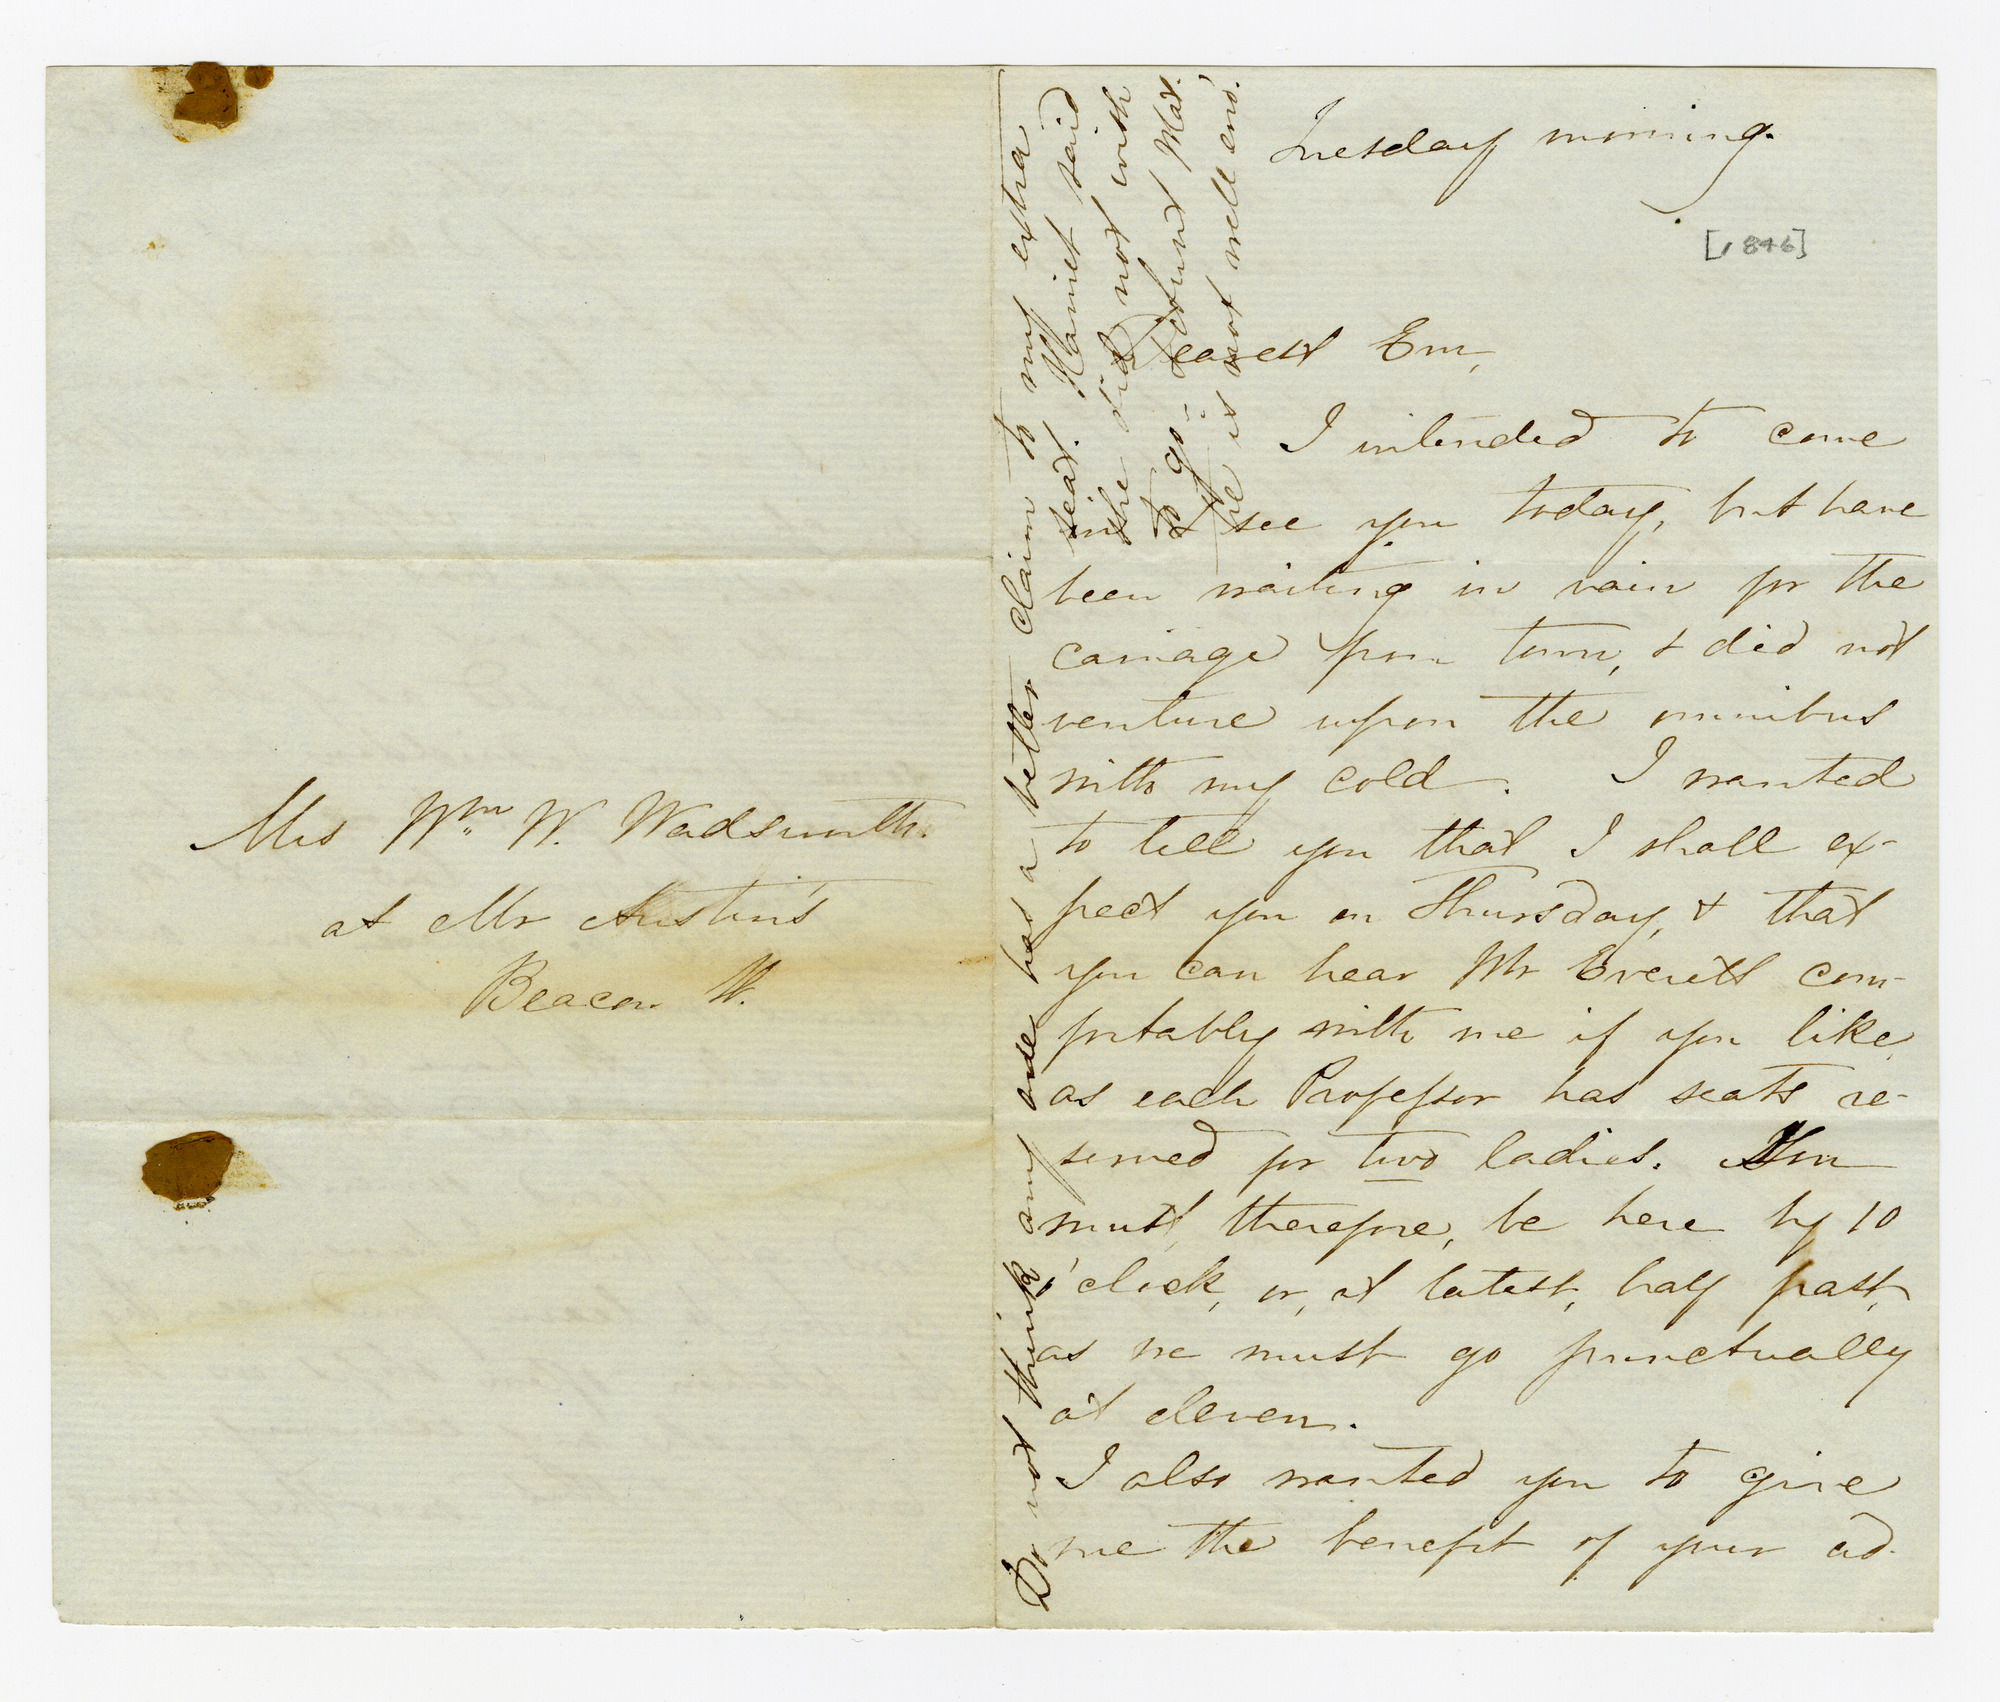 Mrs Wm W. Wadsworth.
at Mr Austin's
Beacon St.
Tuesday morning.
[1846]
Dearest Em,
I intended to come
to see you today, but have
been waiting in vain for the
carriage from town, & did not
venture upon the omnibus
with my cold. I wanted
to tell you that I shall ex-
pect you on Thursday, & that
you can hear Mr Everett com-
fortably with me if you like,
as each Professor has seats re-
served for two ladies. You
must, therefore, be here by 10
o'clock, or, at latest, half past,
as we must go punctually
at eleven.
I also wanted you to give
me the benefit of your ad-
Do not think any one has a better claim to my extra
seat. Harriet said
she did not wish
to go -
he is not well eno'.